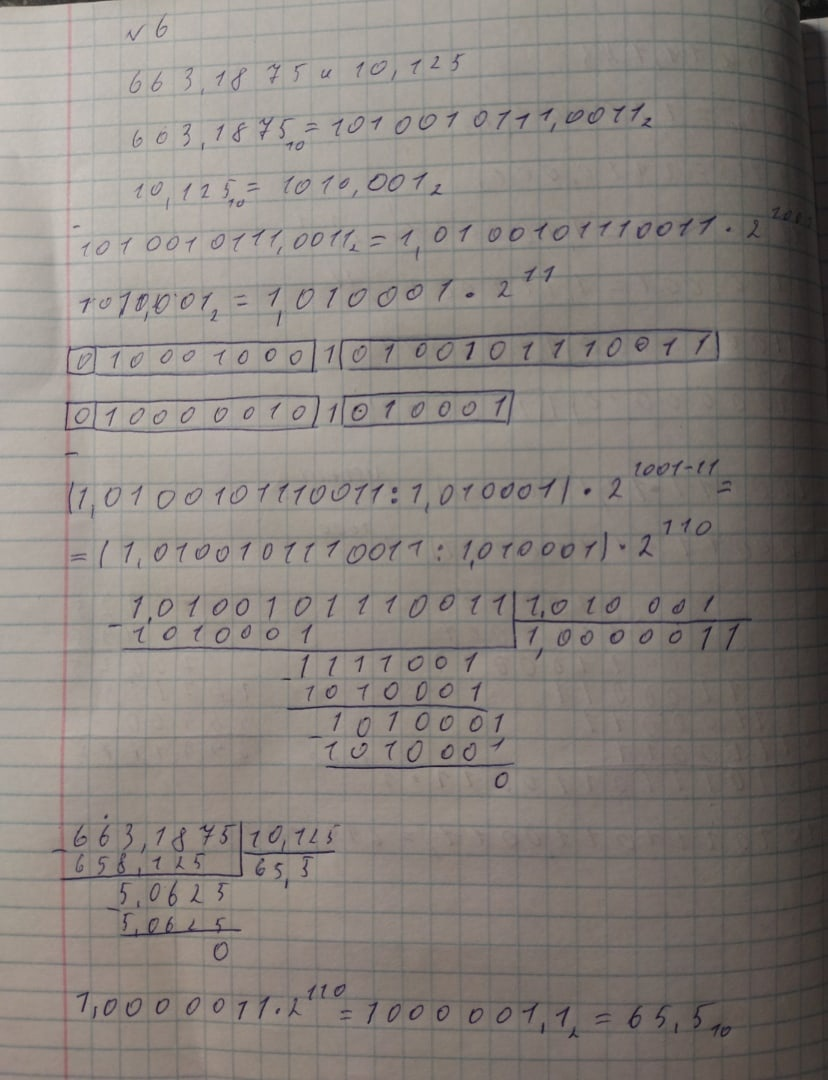 № 6
663,1875 и 10,125
663,1875₁₀ = 1010010111,0011₂
10,125₁₀ = 1010,001₂
1010010111,0011₂ = 1,0100101110011 · 2¹⁰⁰¹
1010,001₂ = 1,010001 · 2¹¹
0 10001000 1 0100101110011
0 10000010 1 010001
(1,0100101110011 : 1,010001) · 2¹⁰⁰¹⁻¹¹ =
= (1,0100101110011 : 1,010001) · 2¹¹⁰
- 1,0100101110011 | 1,010001
1010001 1,0000011
- 1111001
1010001
- 1010001
1010001
0
- 663,1875 | 10,125
658,125 65,5
- 5,0625
5,0625
0
1,0000011 · 2¹¹⁰ = 1000001,1₂ = 65,5₁₀